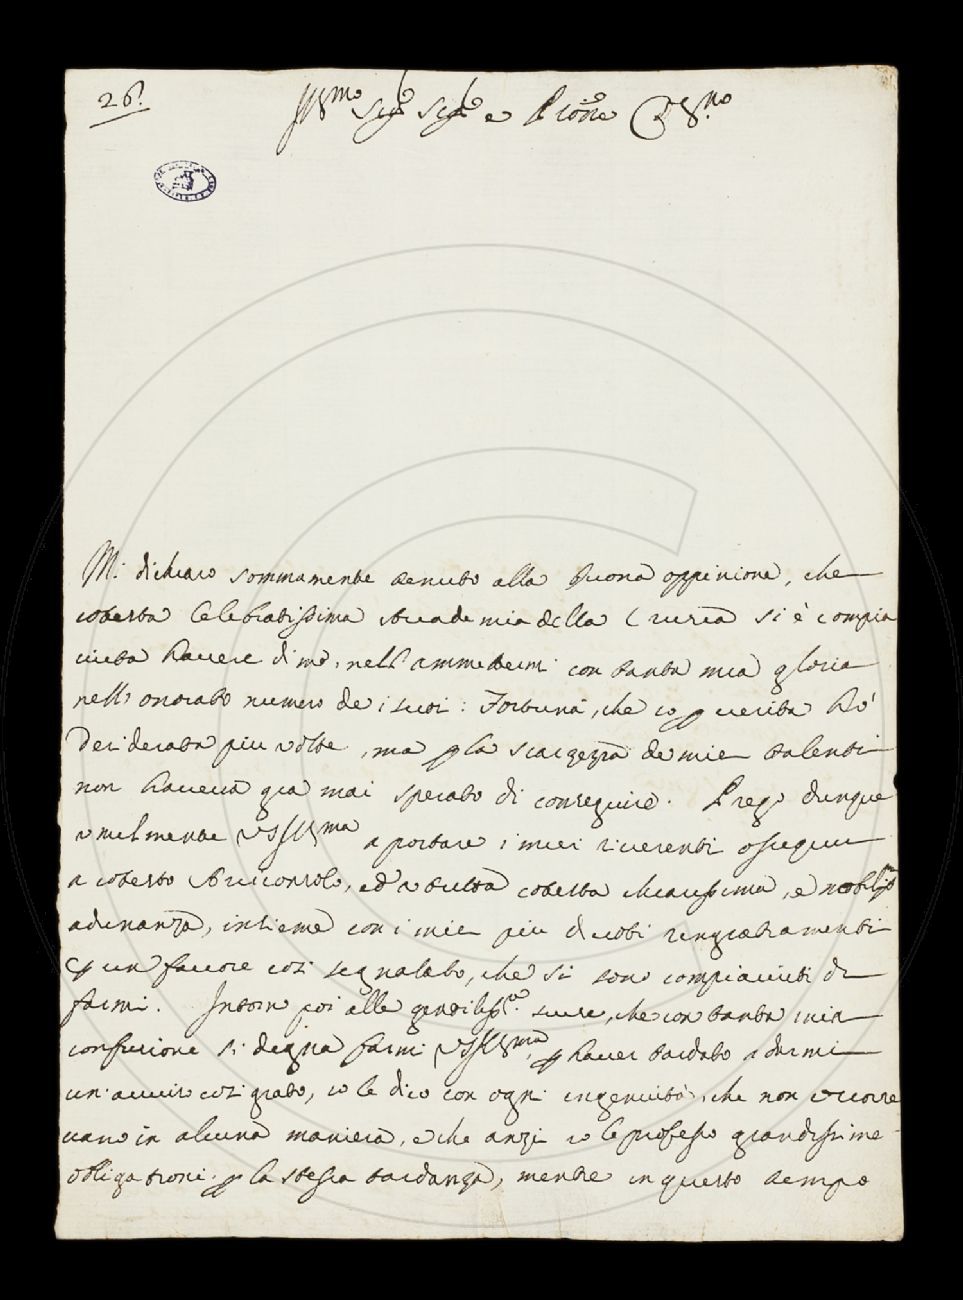 26.
Ill.mo Sig.e Sig.e e P.rone Col.mo
Mi dichiaro sommamente tenuto alla buona oppinione, che
cotesta Celebratissima Accademia della Crusca si è compia
ciuta havere di me, nell'ammettermi con tanta mia gloria
nell'onorato numero de i suoi: Fortuna, che io p verità hò
desiderata più volte, ma p la scarsezza de miei talenti
non haveva gia mai sperato di conseguire. Prego dunque
umilmente VSIll.ma a portare i miei riverenti ossequii
a cotesto Arciconsolo, ed a tutta cotesta chiarissima, e nobiliss.a
adunanza, insieme con i miei più divoti ringraziamenti
p un favore così segnalato, che si sono compiaciuti di
farmi. Intorno poi alle gentiliss.e scuse, che con tanta mia
confusione si degna farmi VSIll.ma, p haver tardato a darmi
un'avviso così grato, io le dico con ogni ingenuità, che non occorre
vano in alcuna maniera, e che anzi io le professo grandissime
obligazioni p la stessa tardanza, mentre in questo tempo